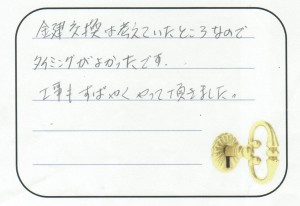 金鍵交換は考えていたところなので
タイミングがよかったです.
工事もすばやくやって頂きました。